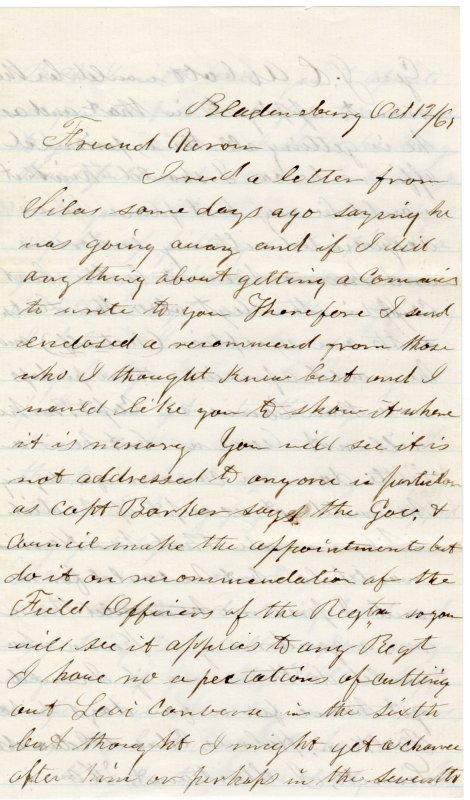 Bladensburg Oct 12/61
Friend Varon
I recd a letter from
Silas some days ago saying he
was going away and if I did
anything about getting a Comis
to write to you Therefore I send
enclosed a recommend from those
who I thought knew best and I
would like you to show it where
it is nessary You will see it is
not addressed to anyone in particular
as Capt Barker says the Gov. &
Council make the appointments but
do it on recommendation of the
Field Officers of the Regt so you
will see it applies to any Regt
I have no apectations of cutting
out Levi Converse in the sixth
but thought I might get a chance
after him or perhaps in the seventh